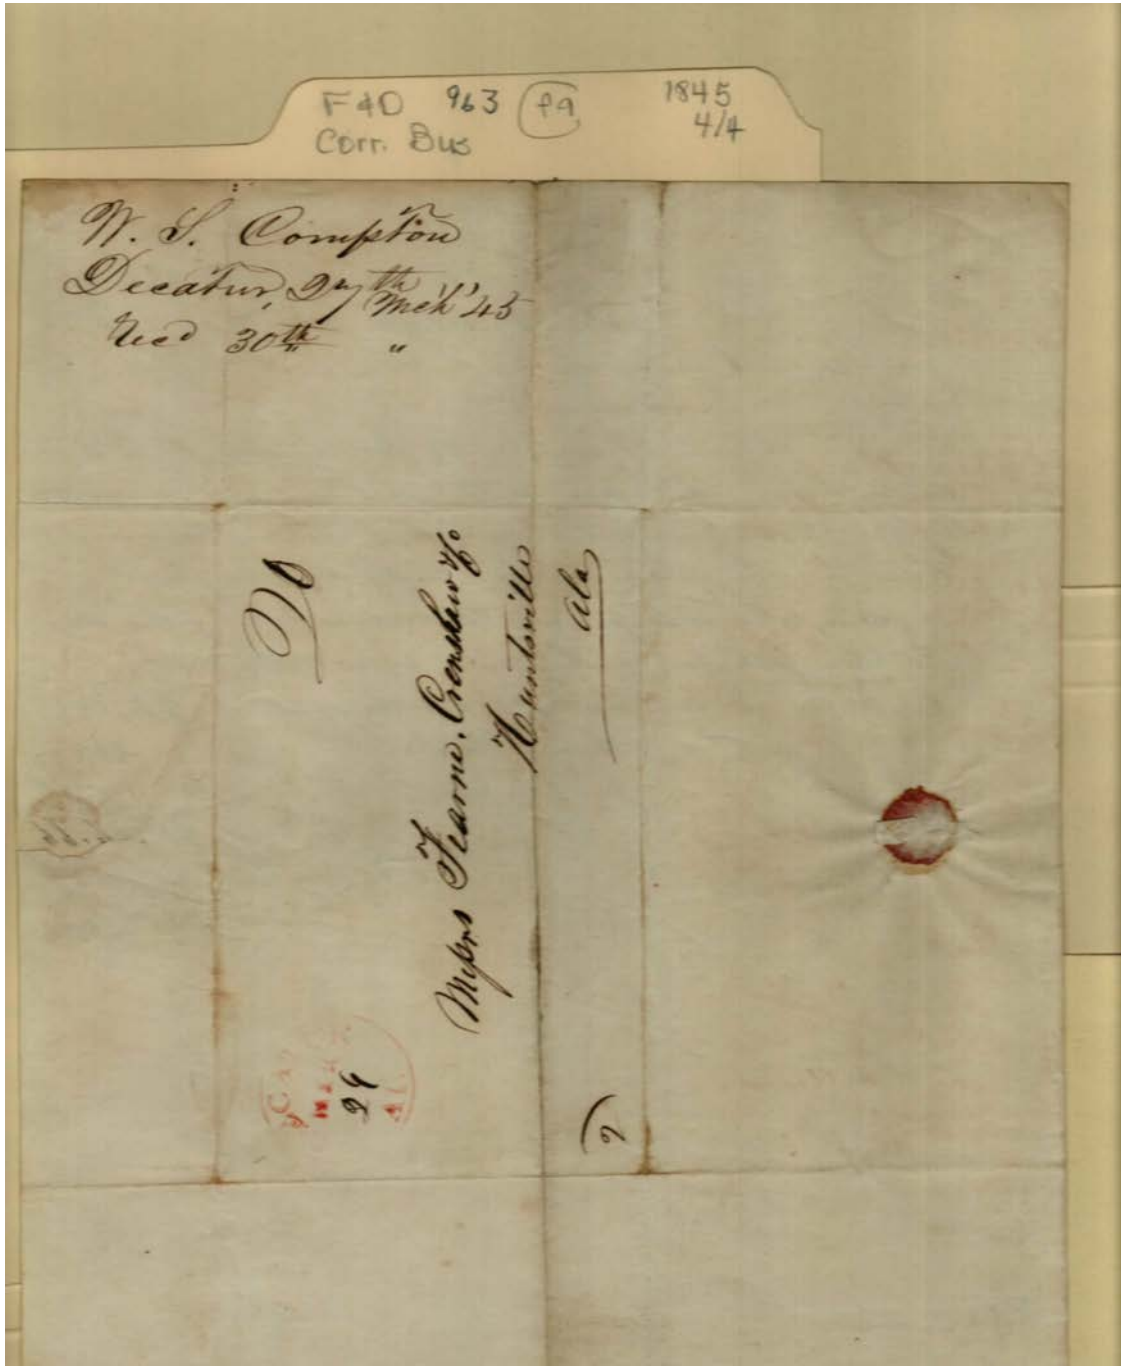 F&D 963 Pa 1845
Corr. Bus 4/4
W. S. Compton
Decatur, 27th Mch '45
Recd 30th "
10
Messrs Fearne, Crenshaw & Co
Huntsville
Ala
MAR
29
2